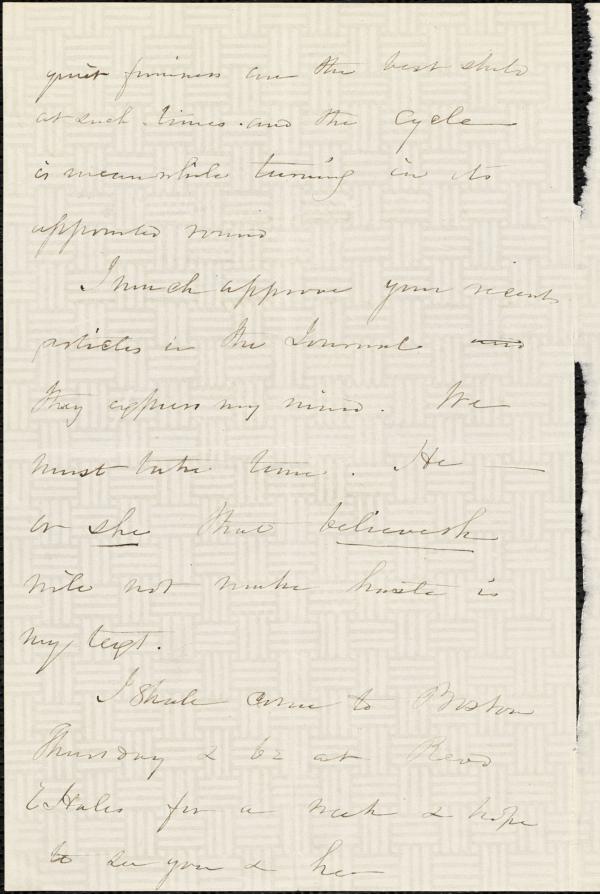 quiet firmness are the best shield
at such times. and the cycle
is meanwhile turning in its
appointed round
I much approve your recent
articles in the Journal and
they express my mind. We
must take time. He
or she that believeth
will not make haste is
my text.
I shall come to Boston
Thursday & be at Revd
E Hales for a week & hope
to see you & her